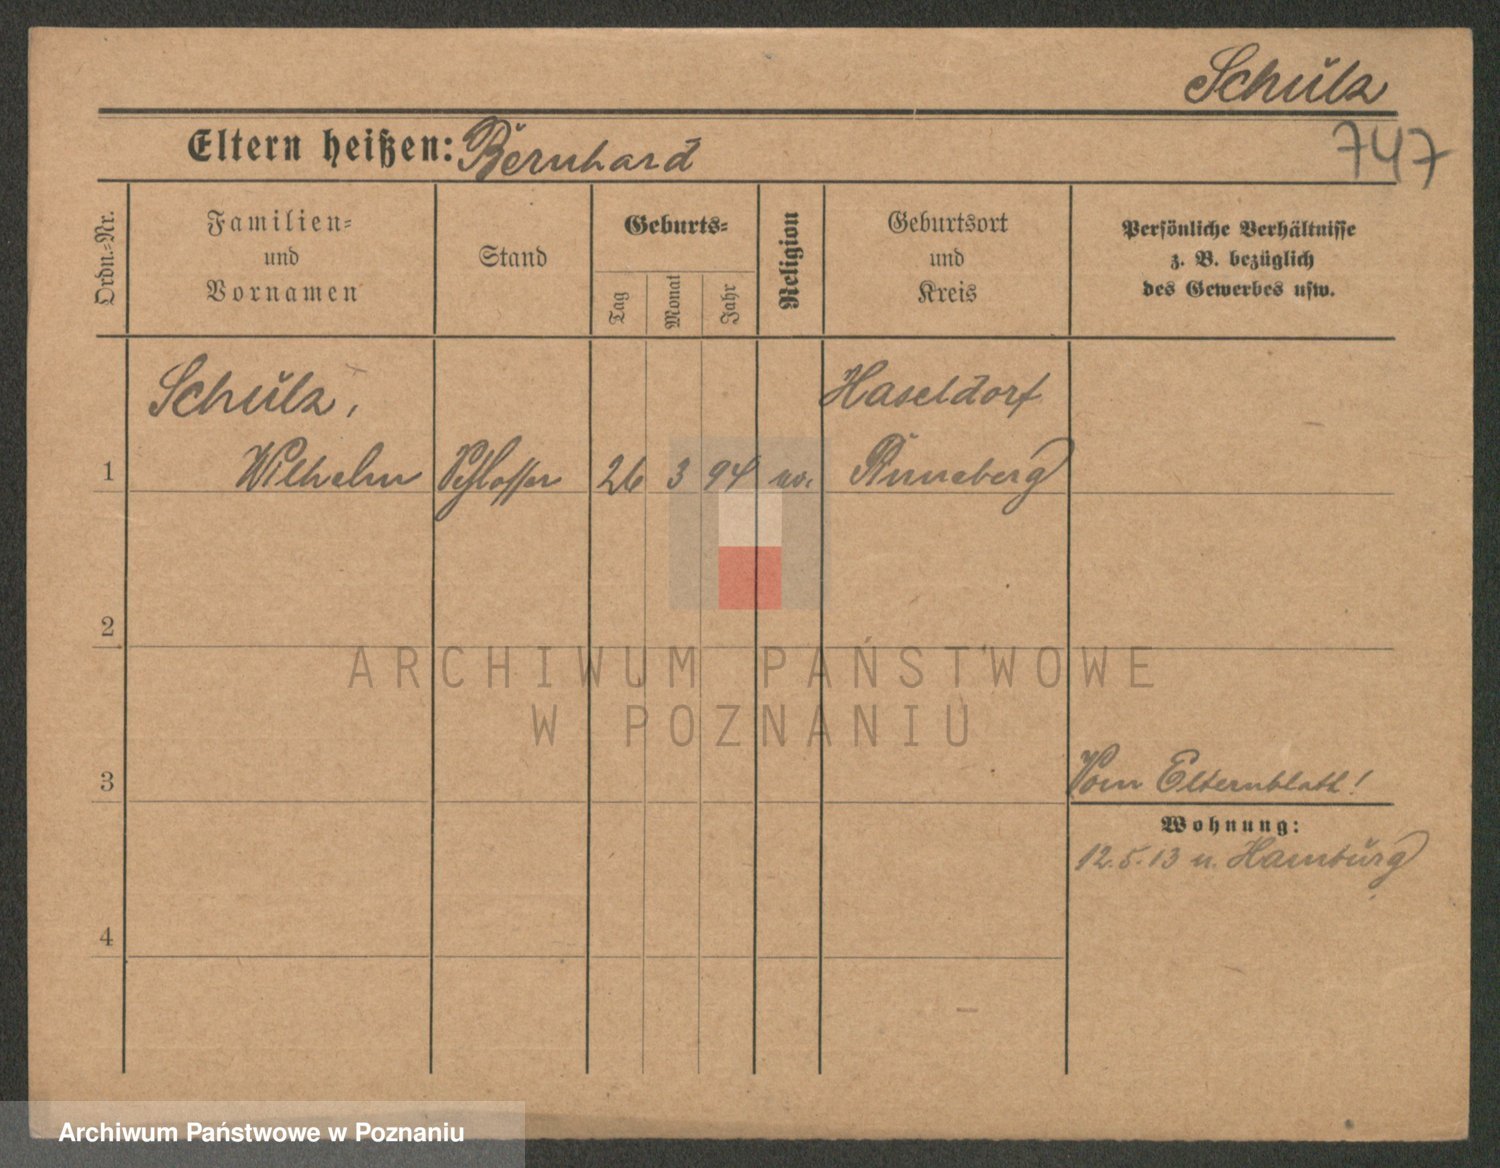 Schulz
747
Eltern heißen: Bernhard
Ordn.-Nr.
Familien-
und
Vornamen
Stand
Geburts-
Tag
Monat
Jahr
Religion
Geburtsort
und
Kreis
Persönliche Verhältnisse
z. B. bezüglich
des Gewerbes usw.
Schulz,
Haseldorf
1 Wilhelm Schlosser 26 3 94 ev. Pinneberg
2
3
Vom Elternblatt!
Wohnung:
12.5.13 n. Hamburg
4
ARCHIWUM PAŃSTWOWE
W POZNANIU
Archiwum Państwowe w Poznaniu